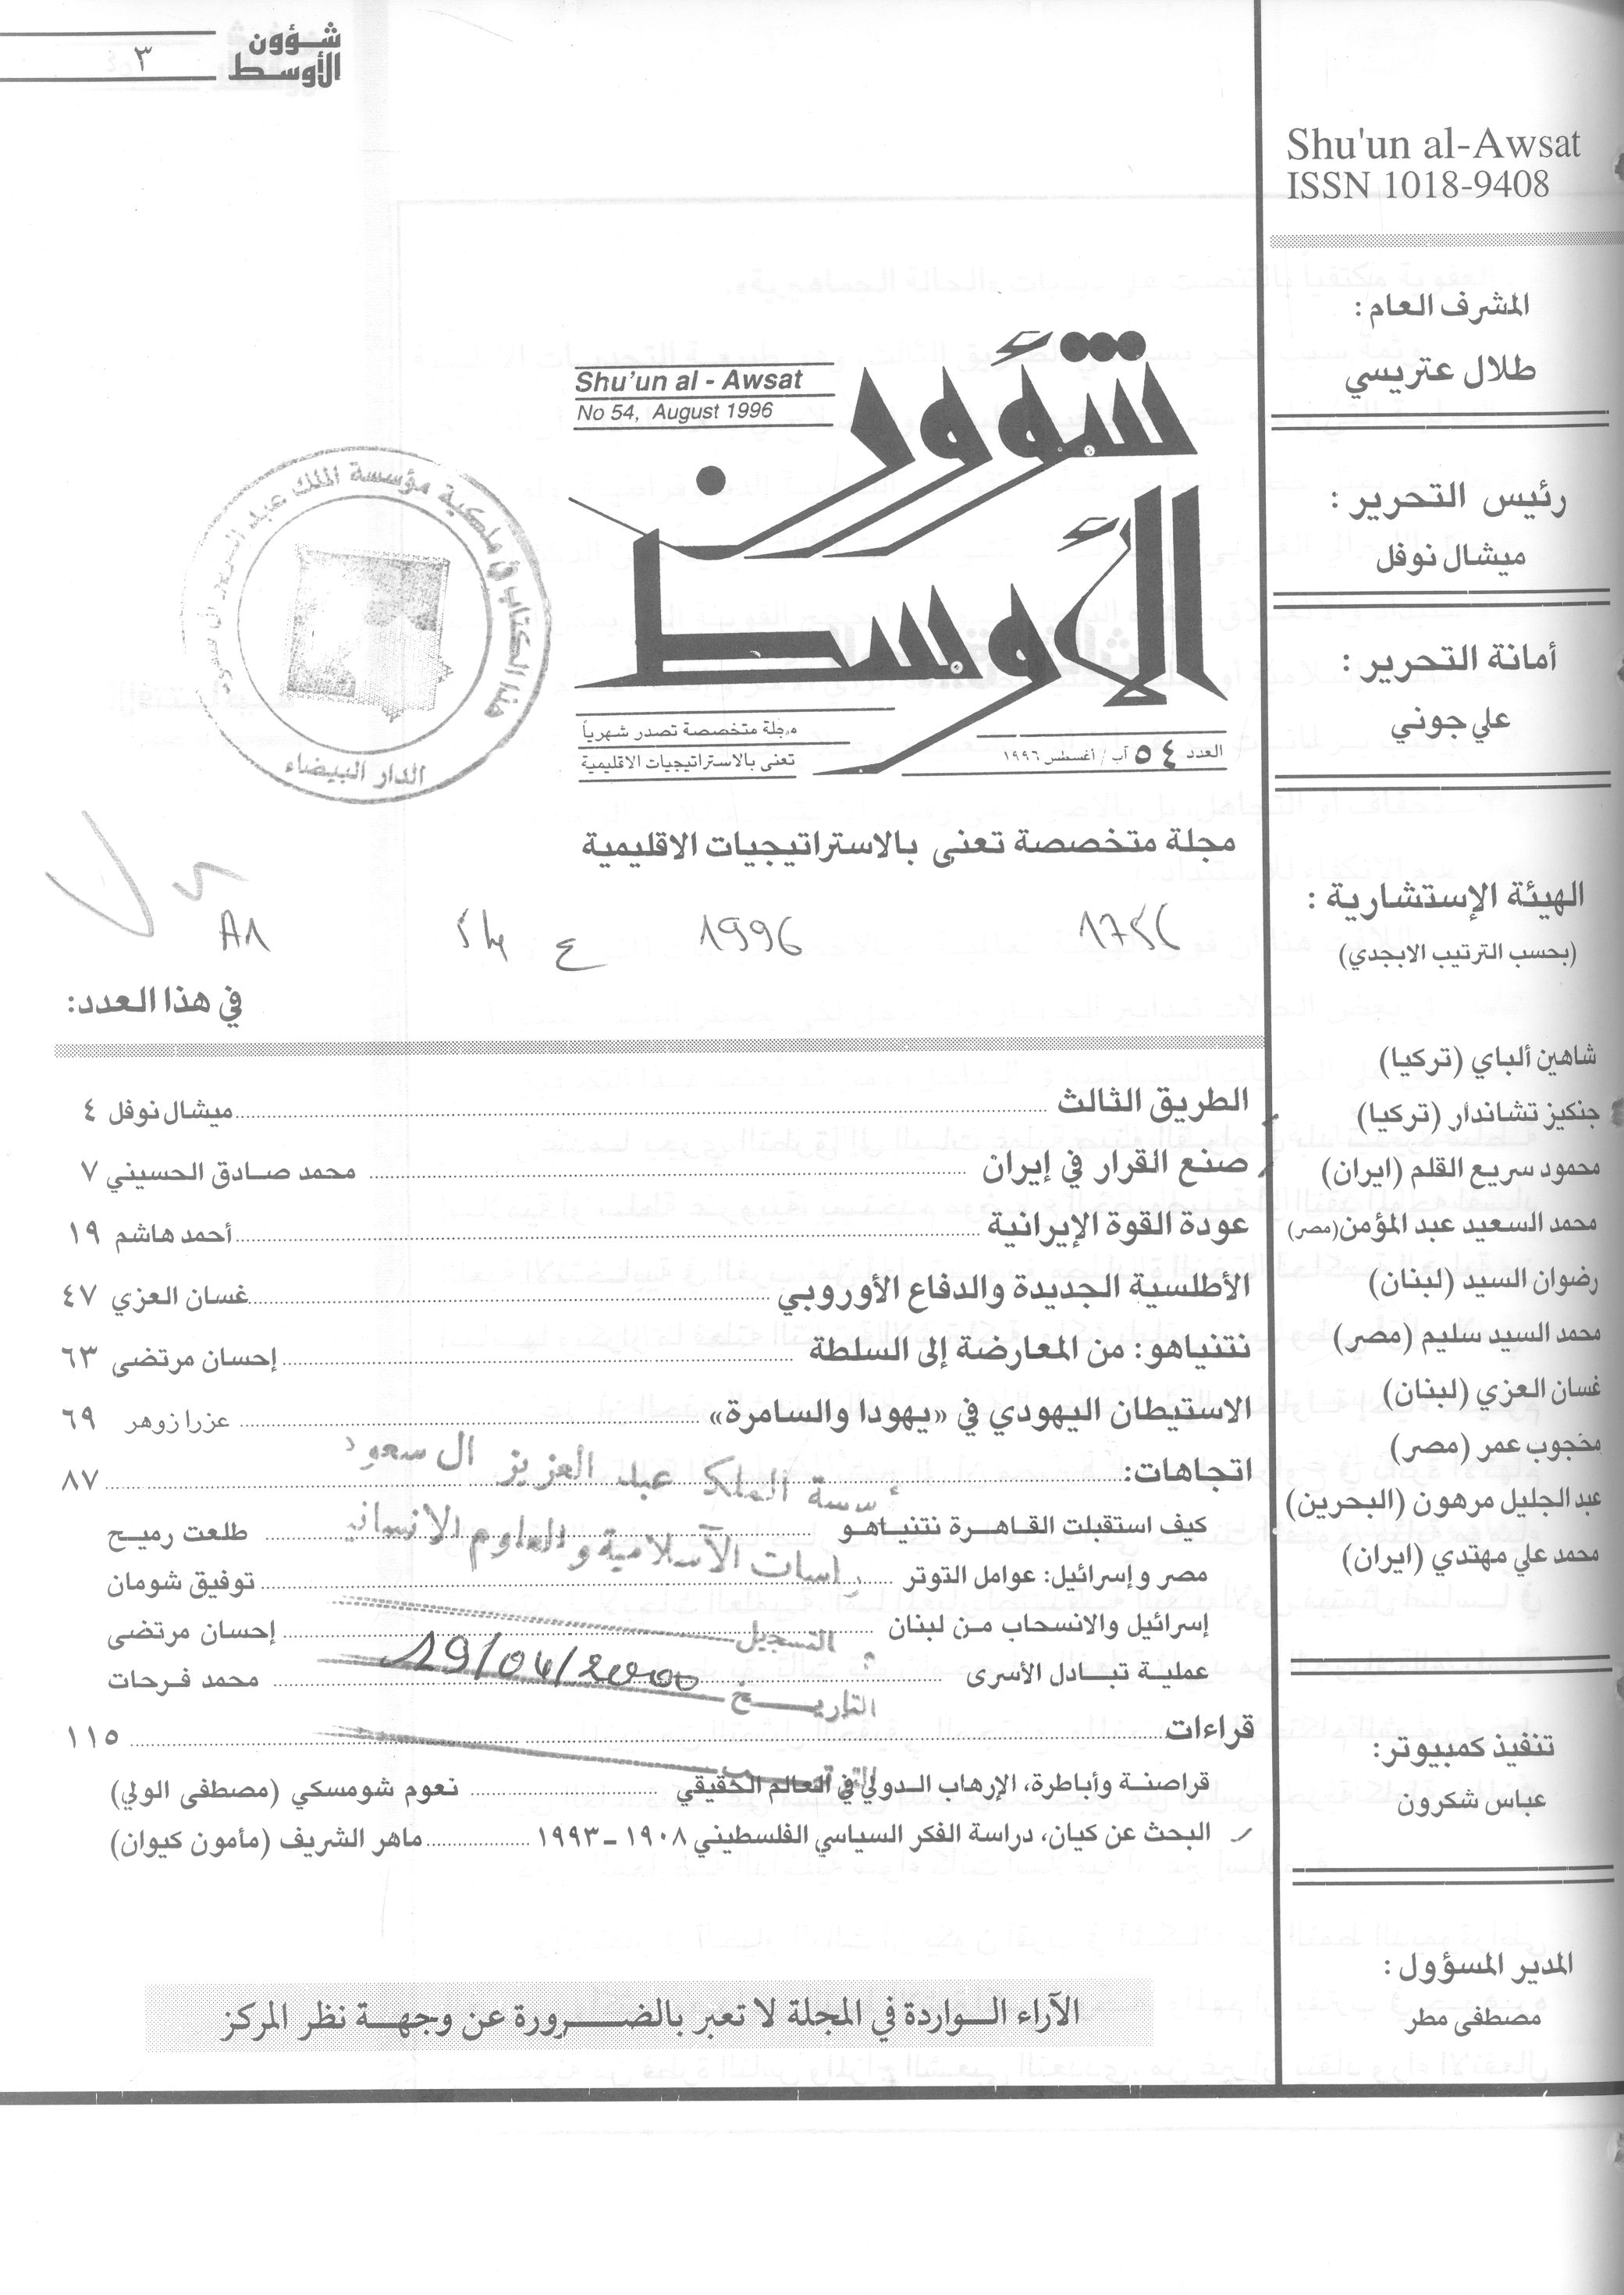 شؤون
الأوسط
٣
Shu'un al-Awsat
ISSN 1018-9408
المشرف العام :
طلال عتريسي
رئيس التحرير :
ميشال نوفل
أمانة التحرير :
علي جوني
الهيئة الإستشارية :
(بحسب الترتيب الابجدي)
شاهين ألباي (تركيا)
جنكيز تشاندار (تركيا)
محمود سريع القلم (ايران)
محمد السعيد عبد المؤمن (مصر)
رضوان السيد (لبنان)
محمد السيد سليم (مصر)
غسان العزي (لبنان)
محجوب عمر (مصر)
عبد الجليل مرهون (البحرين)
محمد علي مهتدي (ايران)
تنفيذ كمبيوتر:
عباس شكرون
المدير المسؤول :
مصطفى مطر
Shu'un al - Awsat
No 54, August 1996
شؤون
الأوسط
مجلة متخصصة تصدر شهرياً
تعنى بالاستراتيجيات الاقليمية
العدد ٥٤ آب/ أغسطس ١٩٩٦
هذا الكتاب في ملكية مؤسسة الملك عبد العزيز آل سعود
الدار البيضاء
مجلة متخصصة تعنى بالاستراتيجيات الاقليمية
1996 ع
A1
في هذا العدد:
الطريق الثالث ........ ميشال نوفل ٤
صنع القرار في إيران ........ محمد صادق الحسيني ٧
عودة القوة الإيرانية ........ أحمد هاشم ١٩
الأطلسية الجديدة والدفاع الأوروبي ........ غسان العزي ٤٧
نتنياهو: من المعارضة إلى السلطة ........ إحسان مرتضى ٦٣
الاستيطان اليهودي في «يهودا والسامرة» ........ عزرا زوهر ٦٩
اتجاهات: ........ ٨٧
كيف استقبلت القاهرة نتنياهو ........ طلعت رميح
مصر وإسرائيل: عوامل التوتر ........ توفيق شومان
إسرائيل والانسحاب من لبنان ........ إحسان مرتضى
عملية تبادل الأسرى ........ محمد فرحات
قراءات ........ ١١٥
قراصنة وأباطرة، الإرهاب الدولي في العالم الحقيقي ........ نعوم شومسكي (مصطفى الولي)
البحث عن كيان، دراسة الفكر السياسي الفلسطيني ١٩٠٨ – ١٩٩٣ ........ ماهر الشريف (مأمون كيوان)
سسة الملك عبد العزيز ال سعود
اسات الاسلامية والعلوم الانسان
التسجيل
19/04/2000
التاريخ
الآراء الواردة في المجلة لا تعبر بالضرورة عن وجهة نظر المركز